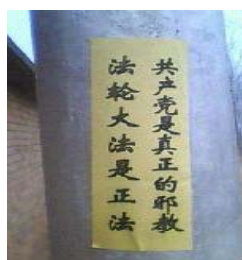 共产党是真正的邪教
法轮大法是正法